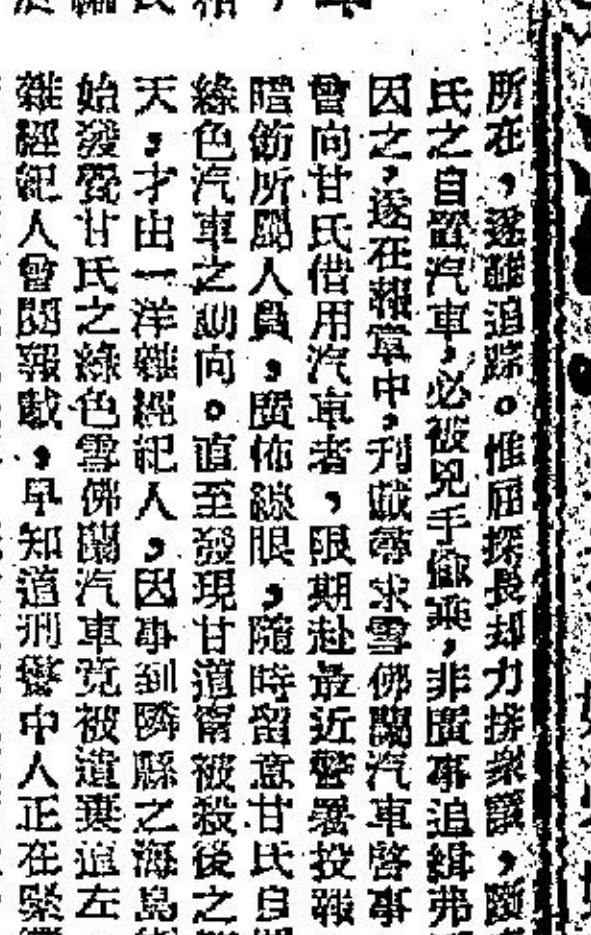 所在，遂難追踪。惟屈探長却力排衆議，
氏之自置汽車，必被兇手偸乘，非廣事追緝弗
因之，遂在報章中，刋載尋求雪佛蘭汽車啓事
曾向甘氏借用汽車者，限期赴最近警署投報
曁飭所屬人員，廣佈線眼，隨時留意甘氏自
綠色汽車之動向。直至發現甘道甯被殺後之
天，才由一洋雜經紀人，因事到隣縣之海島
始發覺甘氏之綠色雪佛蘭汽車竟被遺棄道左
雜經紀人曾閱報載，早知道刑警中人正在緊